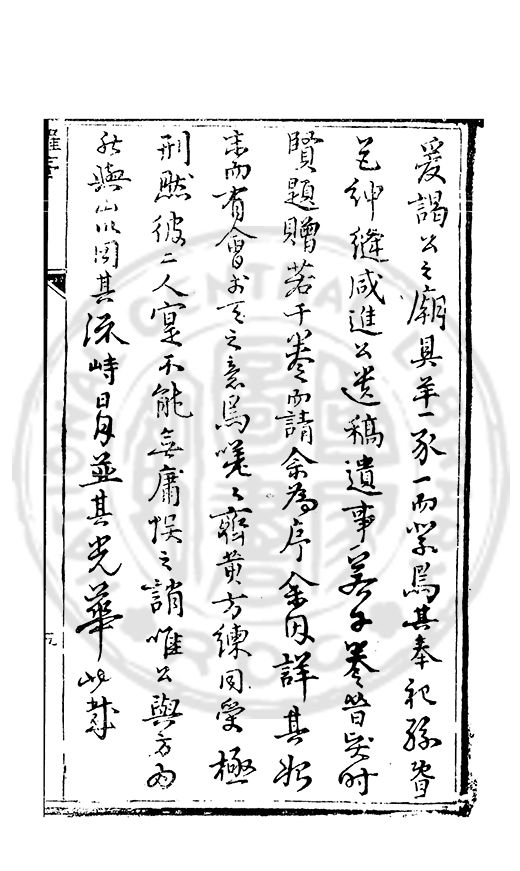 爰謁公之廟具羊一豕一而祭焉其奉祀孫
邑紳縫咸進公遺稿遺事若干卷昔時
賢題贈若干卷而請余為序余因詳其始
末而有會於天之意焉嗟嗟齊黃方練同受極
刑然彼二人寔不能無庸悞之誚唯公與方為
與山川同其流峙日月並其光華